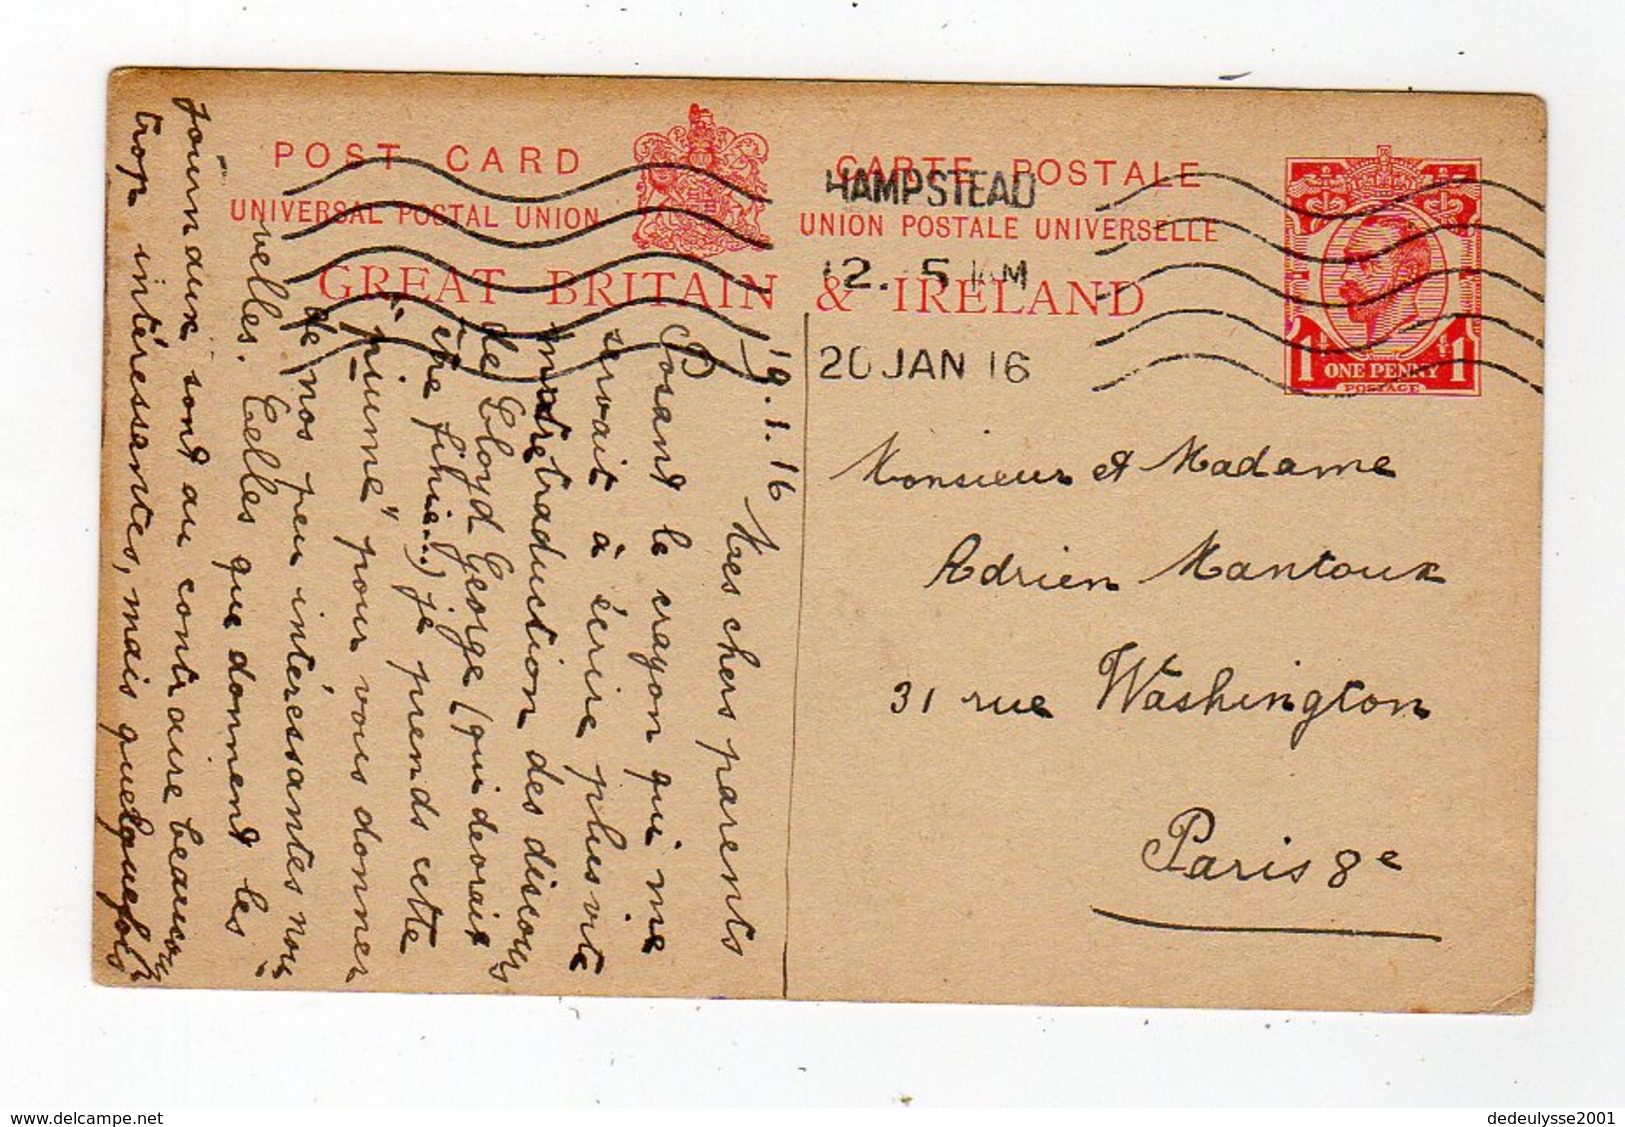 POST CARD
CARTE POSTALE
UNIVERSAL POSTAL UNION
UNION POSTALE UNIVERSELLE
GREAT BRITAIN & IRELAND
HAMPSTEAD
12.15 AM
20 JAN 16
1 ONE PENNY 1
POSTAGE
Monsieur et Madame
Adrien Mantoux
31 rue Washington
Paris 8e
19.1.16 Mes chers parents
Posant le crayon qui me
servait à écrire plus vite
notre traduction des discours
de Lloyd George (qui devrait
être finie...) je prends cette
"piume" pour vous donner
de nos peu intéressantes nou-
velles. Celles que donnent les
journaux sont au contraire beaucoup
trop intéressantes, mais quelquefois
www.delcampe.net
dedeulysse2001